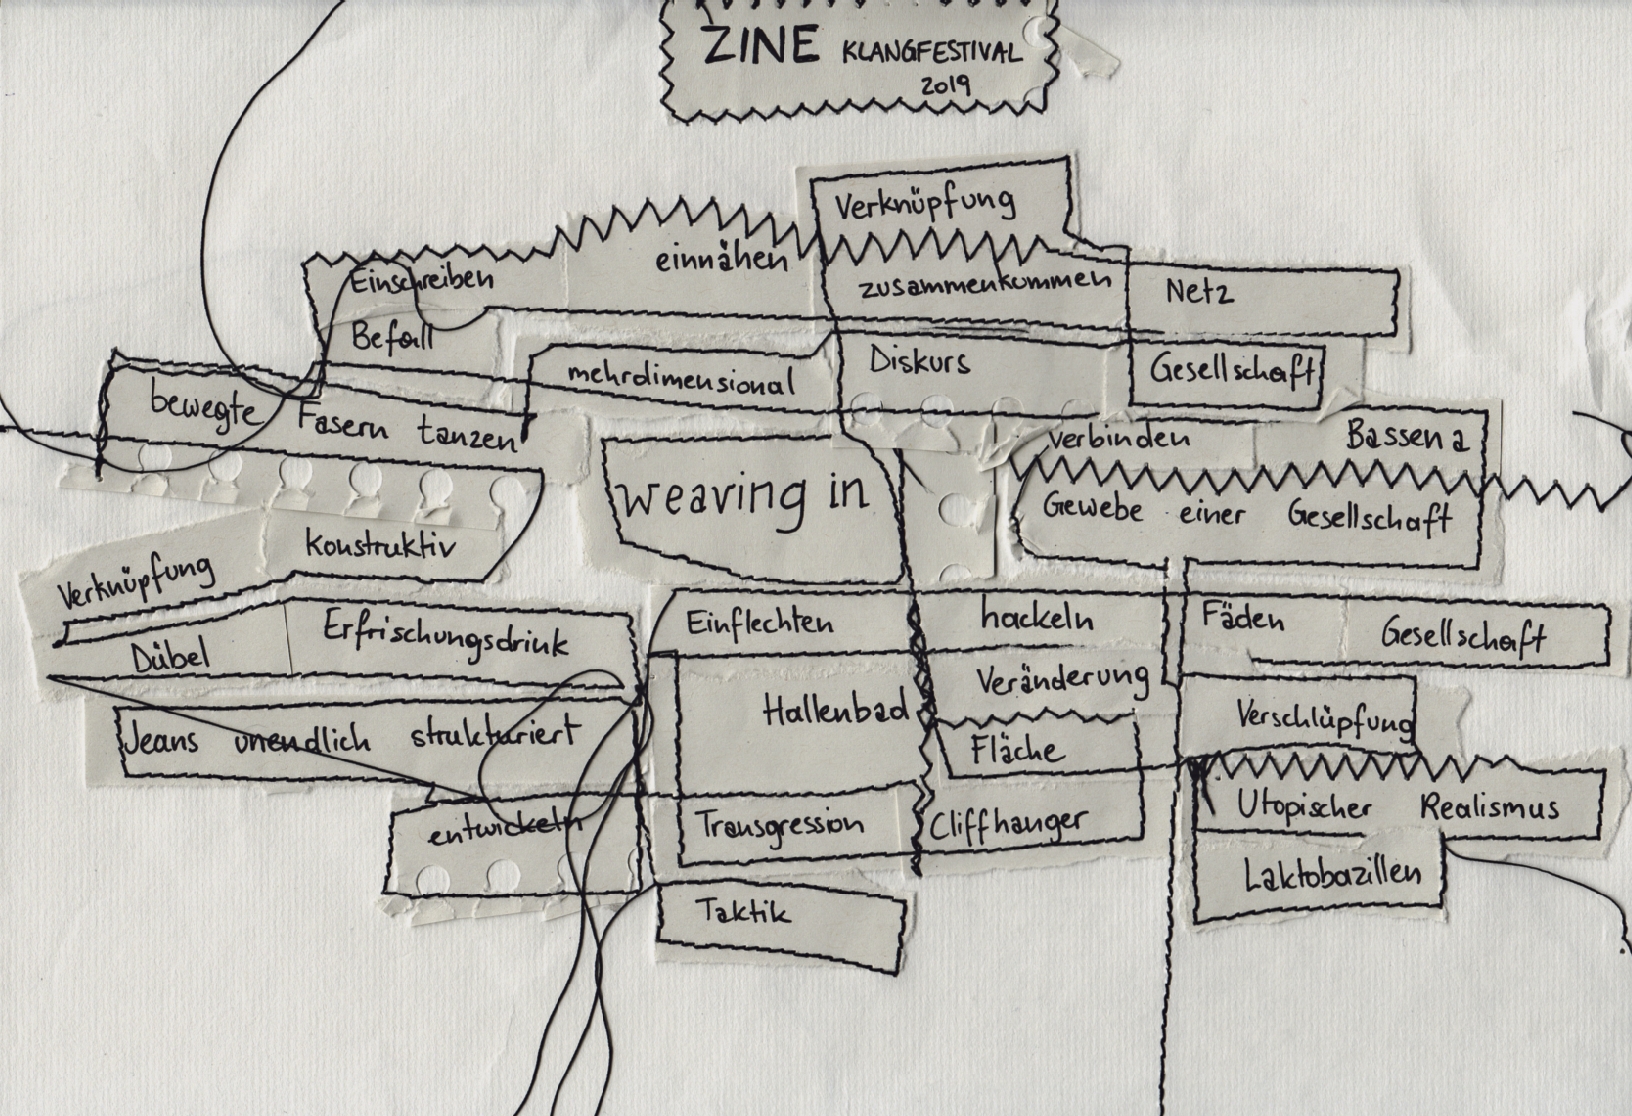 ZINE KLANGFESTIVAL
2019
Verknüpfung
Einschreiben einnähen zusammenkommen Netz
Befall mehrdimensional Diskurs Gesellschaft
bewegte Fasern tanzen verbinden Bassena
weaving in Gewebe einer Gesellschaft
Verknüpfung konstruktiv
Dübel Erfrischungsdrink Einflechten hackeln Fäden Gesellschaft
Hallenbad Veränderung Verschlüpfung
Jeans unendlich strukturiert Fläche
entwickeln Transgression Cliffhanger Utopischer Realismus
Laktobazillen
Taktik